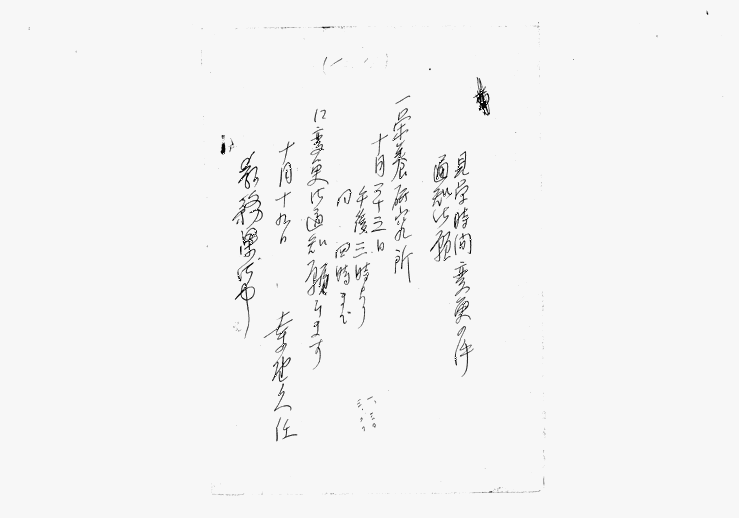 見学時間変更届
通知御願
一栄養研究所
十月二十三日
午後三時より
同 四時まで
に変更御通知願ひます
十月十九日
教務課御中